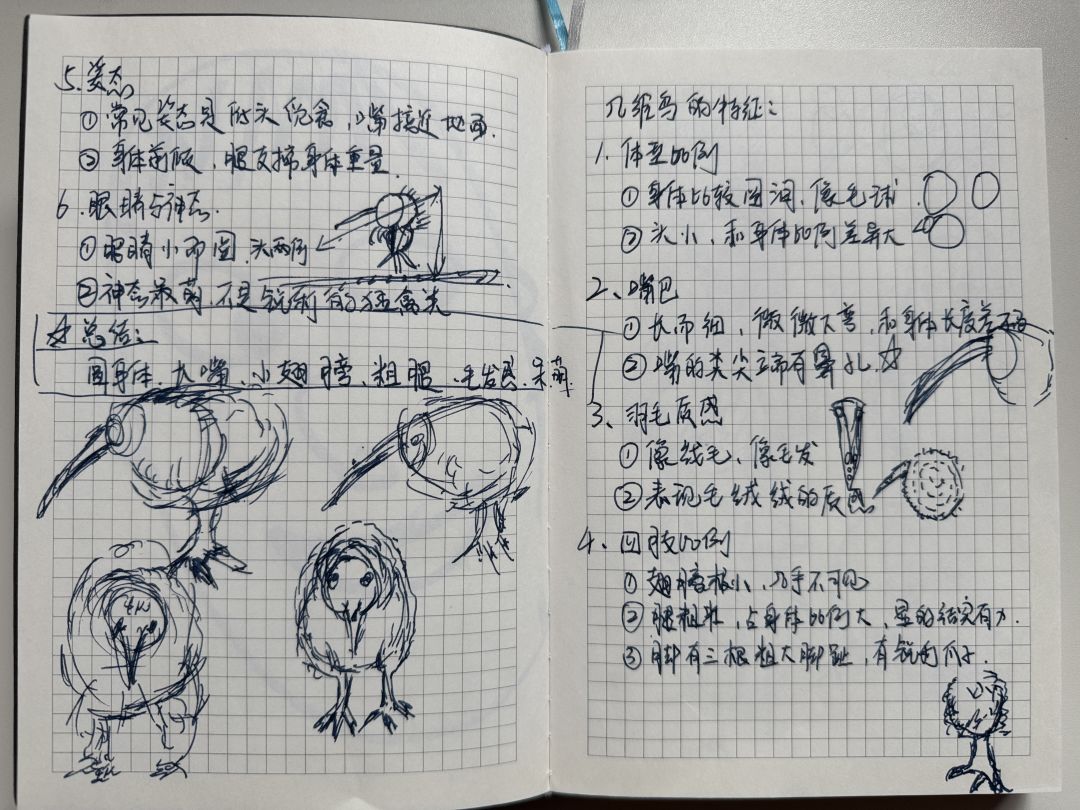 5.姿态
①常见姿态是低头觅食,嘴接近地面.
②身体前倾,腿支撑身体重量.
6.眼睛与神态.
①眼睛小而圆.头两侧
②神态呆萌.不是锐利的猛禽类
☆总结:
圆身体、长嘴、小翅膀、粗腿、毛发感.呆萌.
几维鸟的特征:
1.体型比例
①身体比较圆润.像毛球.
②头小、和身体比例差异大
2、嘴巴
①长而细,微微下弯,和身体长度差不多
②嘴的类尖端有鼻孔.☆
3、羽毛质感
①像绒毛、像毛发
②表现毛绒绒的质感
4、四肢比例
①翅膀极小、几乎不可见
②腿粗壮,占身体比例大,显的结实有力.
③脚有三根粗大脚趾,有锐的爪子.